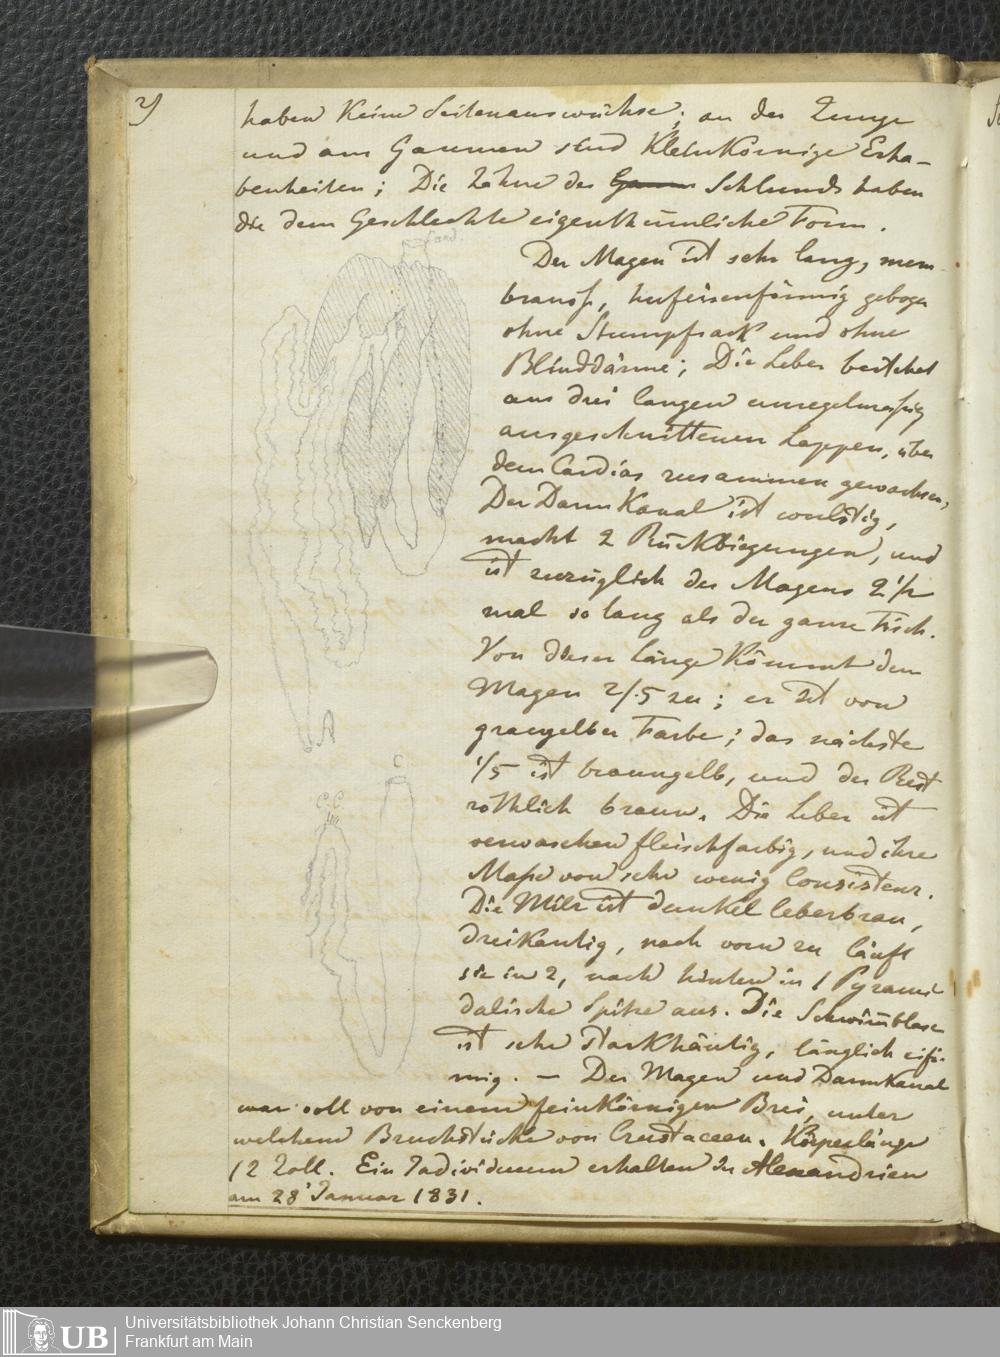 2)
haben Keine Seitenauswüchse; an der Zunge
und am Gaumen sind KleinKörnige Erha-
benheiten; Die Zähne des Schlunds haben
die dem Geschlechte eigenthümliche Form.
Card.
Der Magen ist sehr lang, mem-
branös, hufeisenförmig gebogen
ohne Stumpfsack und ohne
Blinddärme; Die Leber bestehet
aus drei langen unregelmäßig
ausgeschnittenen Lappen, über
dem Cardias zusammen gewachsen,
Der DarmKanal ist wulstig,
macht 2 RückBiegungen, und
ist zuzüglich des Magens 2 1/2
mal so lang als der ganze Fisch.
Von dieser Länge Kömmt dem
Magen 2/5 zu; er ist von
graugelber Farbe; das nächste
1/5 ist braungelb, und der Rest
röthlich braun. Die Leber ist
verwaschen fleischfarbig, und ihre
Maße von sehr wenig Consistenz.
Die Milz ist dunkel leberbraun,
dreiKantig, nach vorn zu läuft
sie in 2, nach hinten in 1 Pyrami-
dalische Spitze aus. Die Schwimblase
ist sehr starKhäutig, länglich eifö-
rmig. — Der Magen und DarmKanal
war voll von einem feinKörnigen Brei, unter
welchem Bruchstücke von Crustaceen. Körperlänge
12 Zoll. Ein Individuum erhalten in Alexandrien
am 28' Januar 1831.
A
C
C. C.
UB
Universitätsbibliothek Johann Christian Senckenberg
Frankfurt am Main